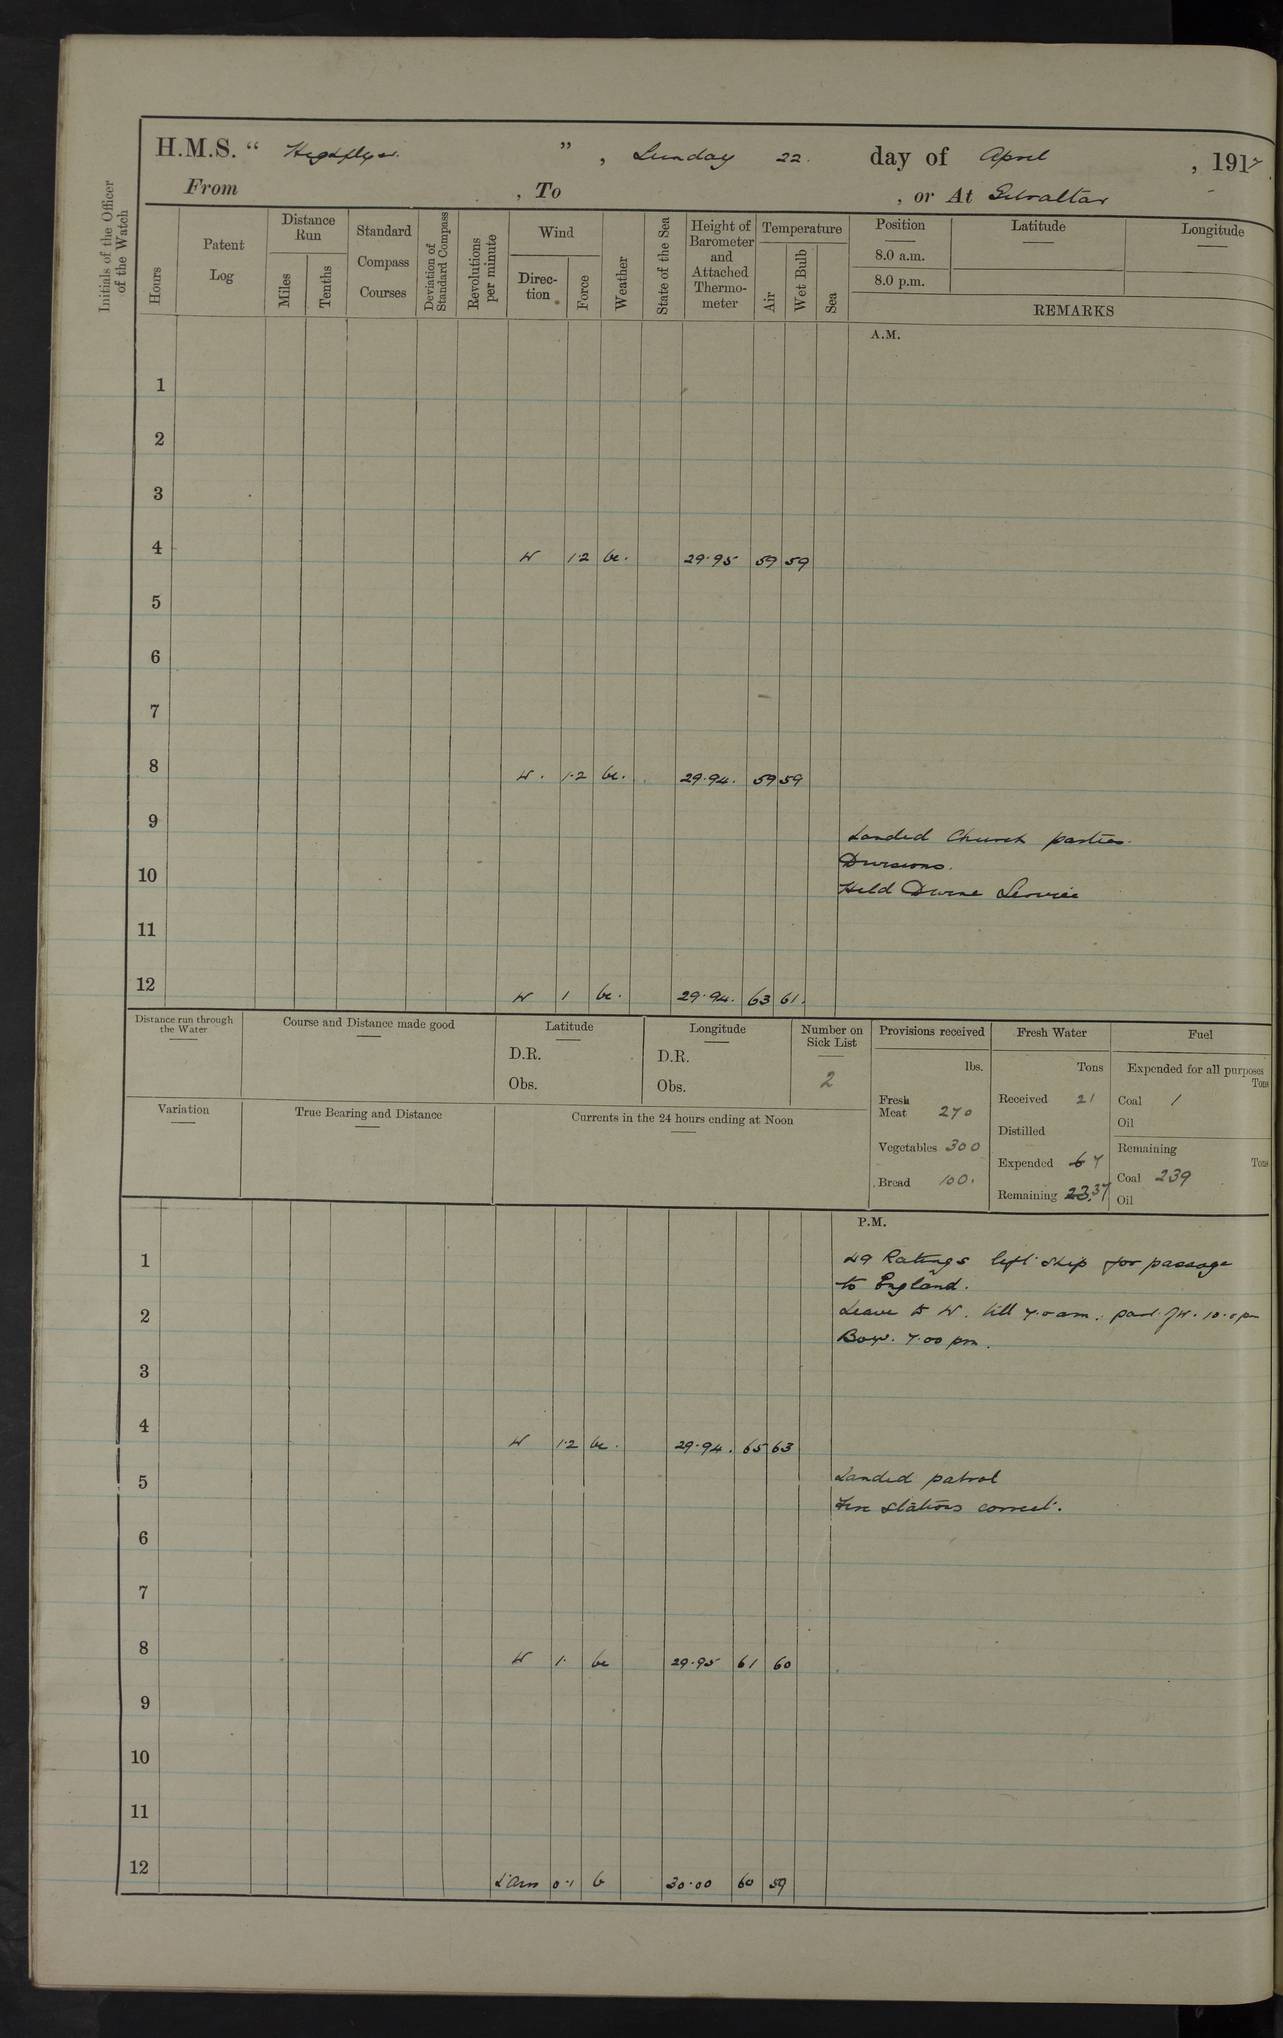 H.M.S. “ Highflyer. ” , Sunday 22. day of April , 1917
From , To , or At Gibraltar
Initials of the Officer of the Watch
Hours
Patent Log
Distance Run
Miles
Tenths
Standard Compass Courses
Deviation of Standard Compass
Revolutions per minute
Wind
Direction
Force
Weather
State of the Sea
Height of Barometer and Attached Thermometer
Temperature
Air
Wet Bulb
Sea
Position Latitude Longitude
8.0 a.m.
8.0 p.m.
REMARKS
A.M.
1
2
3
4 W 1·2 bc. 29·95 59 59
5
6
7
8 W. 1·2 bc. 29·94. 59 59
9
Landed Church parties.
Divisions.
10
Held Divine Service
11
12 W 1 bc. 29·94. 63 61.
Distance run through the Water
Course and Distance made good
Latitude
D.R.
Obs.
Longitude
D.R.
Obs.
Number on Sick List
2
Variation
True Bearing and Distance
Currents in the 24 hours ending at Noon
Provisions received
lbs.
Fresh Meat 270
Vegetables 300
Bread 100.
Fresh Water
Tons
Received 21
Distilled
Expended 6 7
Remaining 23. 37
Fuel
Expended for all purposes
Tons
Coal 1
Oil
Remaining
Tons
Coal 239
Oil
P.M.
1 49 Ratings left ship for passage
to England.
2 Leave to W. till 7.0 am. 10.0 pm
Boys. 7.00 pm.
3
4 W 1·2 bc. 29·94. 65 63
5 Landed patrol
Fire stations correct.
6
7
8 W 1. bc 29·95 61 60
9
10
11
12 L'Airs 0·1 b 30·00 60 59